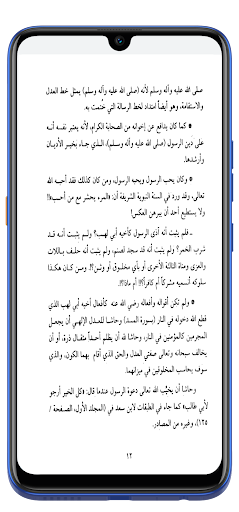 صلى الله عليه وآله وسلم) لأنه (صلى الله عليه وآله وسلم) يمثل خط العدل
والاستقامة، وهو أيضاً امتداد لخط الرسالة التي خُتمت به.
• كما كان يدافع عن إخوانه من الصحابة الكرام، لأنه يعتبر نفسه أنه
على دين الرسول (صلى الله عليه وآله وسلم)، الذي جاء بخير الأديان
وأرشدها.
• وكان يحب الرسول ويحبه الرسول، ومن كان كذلك فقد أحبه الله
تعالى، وقد ورد في السنة النبوية الشريفة أن: «المرء يحشر مع من أحب»!!
ولا يستطيع أحد أن يبرهن العكس!
ـ فلم يثبت أنه آذى الرسول كأخيه أبي لهب؟ ولم يثبت أنه قد
شرب الخمر؟ ولم يثبت أنه قد سجد لصنم، ولم يثبت أنه حلف باللات
والعزى ومناة الثالثة الأخرى أو بأي مخلوق أو وثن؟!. ومن كان هكذا
سلوكه أنسميه مشركاً أم كافراً؟! أم ماذا؟!.
• ولم تكن أقواله وأفعاله رضي الله عنه كأفعال أخيه أبي لهب الذي
قطع الله دخوله في النار (بسورة المسد) وحاشا للعدل الإلهي أن يجعل
المجرمين كالمؤمنين في النار، حاشا لله أن يظلم أحداً مثقال ذرة، أو أن
يخالف سبحانه وتعالى صفتي العدل والحق الذي أقام بهما الكون، والذي
سوف يحاسب المخلوقين في ميزانهما.
وحاشا أن يخيّب الله تعالى دعوة الرسول عندما قال: «كل الخير أرجو
لأبي طالب» كما جاء في الطبقات لابن سعد في (المجلد الأول، الصفحة /
١٢٥)، وغيره من المصادر.
١٢